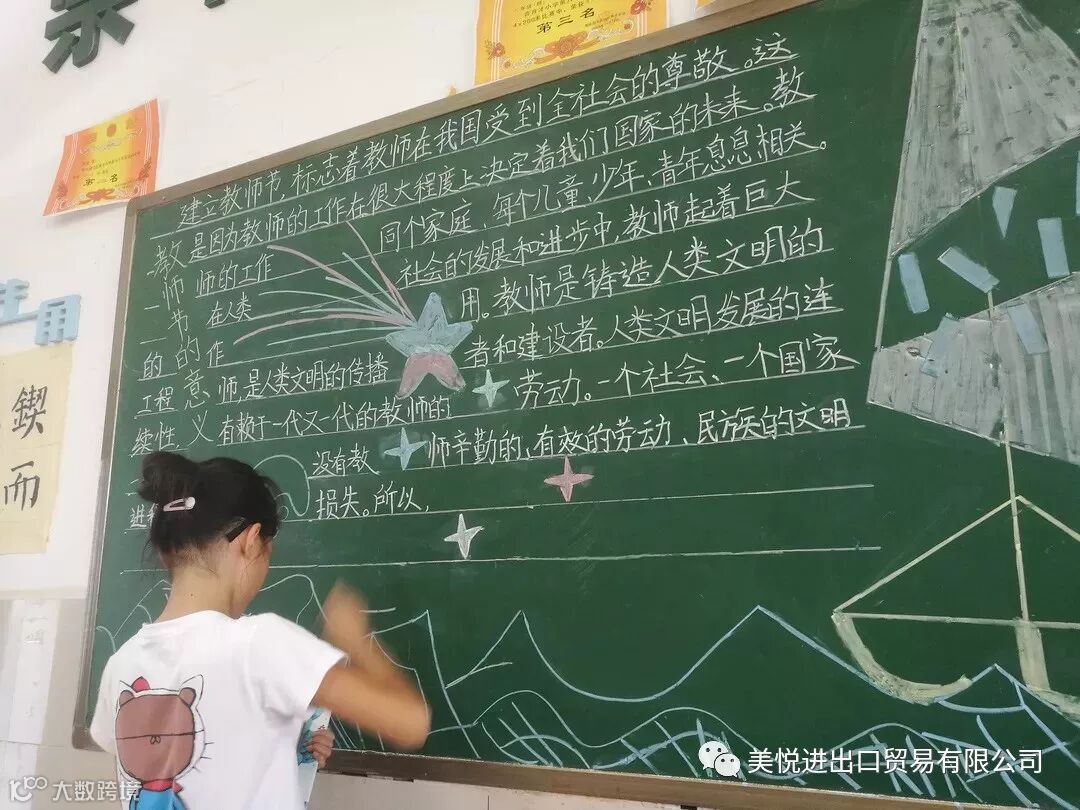 第三名
第二名
建立教师节，标志着教师在我国受到全社会的尊敬。这
是因为教师的工作在很大程度上决定着我们国家的未来。教
师的工作 同个家庭、每个儿童、少年、青年息息相关。
在人类 社会的发展和进步中，教师起着巨大
的作 用。教师是铸造人类文明的
工程 师，是人类文明的传播 者和建设者。人类文明发展的连
续性 有赖于一代又一代的教师的 劳动。一个社会、一个国家
没有教 师辛勤的、有效的劳动、民族的文明
进 损失。所以，
教师节的意义
锲
而
美悦进出口贸易有限公司
大数跨境